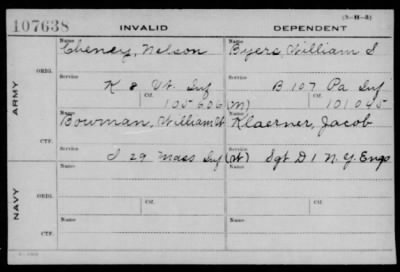 107638 INVALID DEPENDENT (3-H-3)
Name Name
Cheney, Nelson Byers, William S
ARMY
ORIG. Service Service
K 8 Vt. Inf B 107 Pa Inf
Ctf. 105606 (M) Ctf. 101045
Name Name
Bowman, William H Klaerner, Jacob
CTF. Service Service
I 29 Mass Inf (W) Sgt D 1 N.Y. Engs
NAVY
Name Name
ORIG. Service Service
Ctf. Ctf.
Name Name
CTF. Service Service